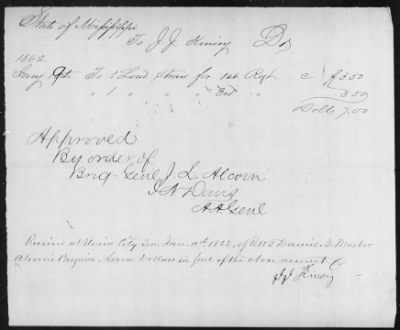 State of Mississippi
To J J Kinsey Dr
1862
Jany 9th To 1 Load Straw for 1st Regt c $3.50
" 1 " " " 3rd " 3.50
Dolls 7.00
Approved
By order of
Brig-Genl J. L. Alcorn
A A Genl
Received at Union City Jan 11th 1862, of Master
Alcorns Brigade. Seven Dollars in full of the above account